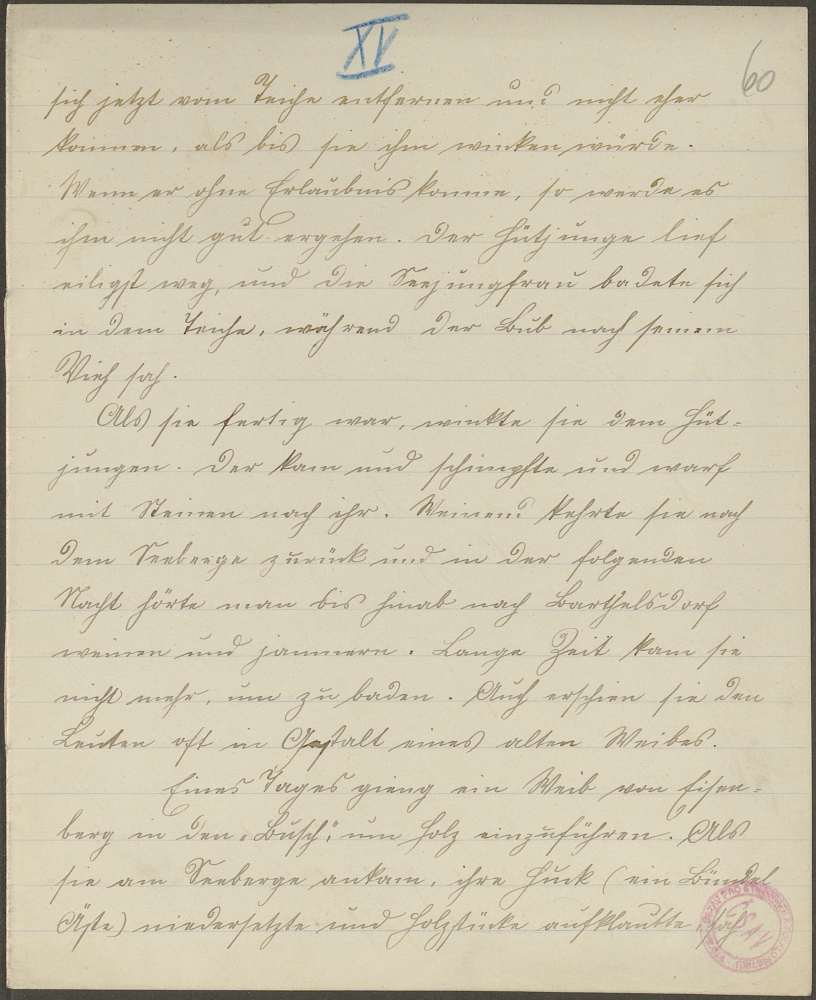 XV
60
sich jetzt vom Teiche entfernen und nicht eher
kommen, als bis sie ihm winken würde.
Wenn er ohne Erlaubnis komme, so werde es
ihm nicht gut ergehen. Der Hütjunge lief
eiligst weg, und die Seejungfrau badete sich
in dem Teiche, während der Bub nach seinem
Vieh sah.
Als sie fertig war, winkte sie dem Hüt-
jungen. Der kam und schimpfte und warf
mit Steinen nach ihr. Weinend kehrte sie nach
dem Seeberge zurück und in der folgenden
Nacht hörte man bis hinab nach Barthelsdorf
weinen und jammern. Lange Zeit kam sie
nicht mehr, um zu baden. Auch erschien sie den
Leuten oft in Gestalt eines alten Weibes.
Eines Tages gieng ein Weib von Eisen-
berg in den „Busch“, um Holz einzuführen. Als
sie am Seeberge ankam, ihre Huck (ein Bündel
Äste) niedersetzte und Holzstücke aufklaubte, sah